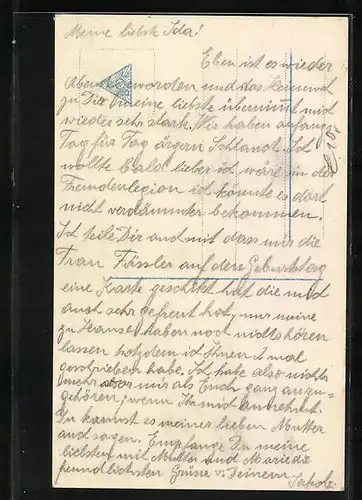 Meine liebste Ida!
Eben ist es wieder
Abend geworden und das Heimweh
zu Dir meine liebste übernimt mich
wieder sehr stark. Wir haben anfangs
Tag für Tag ärgern Ich
wollte bald lieber ich wäre in der
Fremdenlegion ich könnte es dort
nicht verdammter bekommen.
Ich teile Dir auch mit dass mir die
Frau Fässler auf den Geburtstag
eine Karte geschikt hat die mich
auch sehr gefreut hat, nur meine
zu Hause haben noch nichts hören
lassen trotzdem ich Ihnen mal
geschrieben habe. Ich habe also nichts
mehr als Euch ganz anzu-
gehören, wenn Ihr mich annehmt.
Du kannst es meiner lieben Mutter
auch sagen. Empfange Du meine
liebsten mit Mutter und Marie die
freundlichsten Grüsse v. Deinem